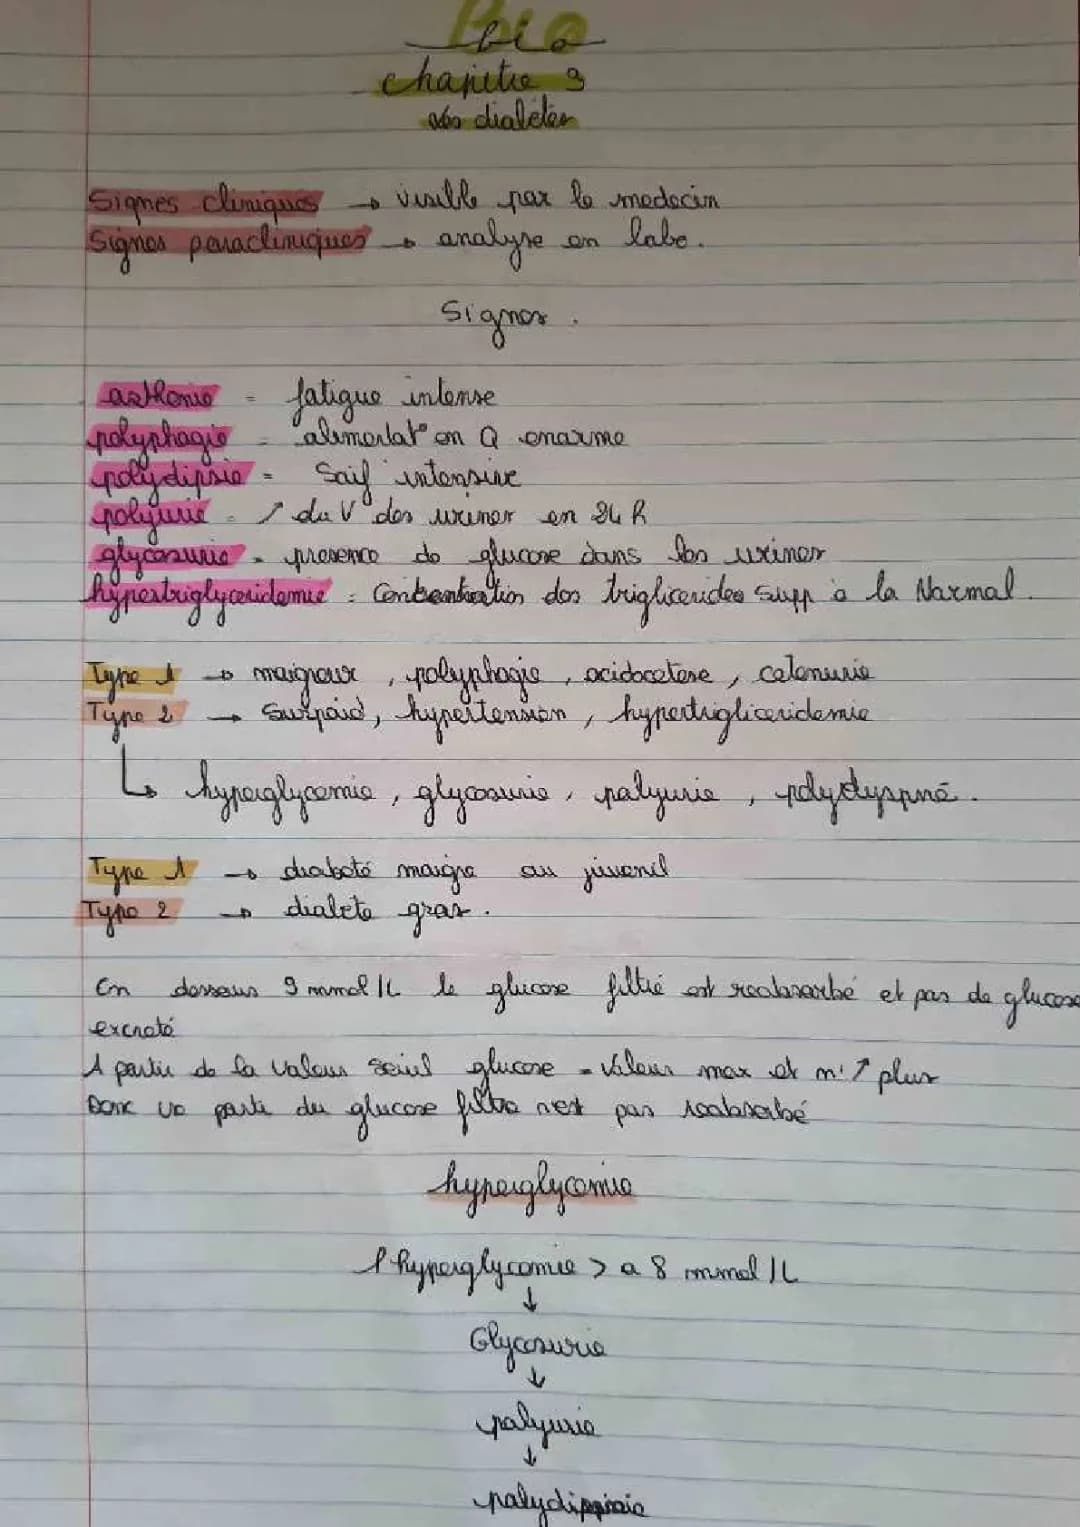 Bio
bio
chapitre 3
les diabètes
Signes cliniques → visible par le medecin
Signes paracliniques → analyse en labo.
Signes.
asthenie = fatigue intense
polyphagie = alimentat° en Q enorme
polydipsie = Soif intensive
polyurie = ↗ du V des urines en 24 h
glycosurie = presence de glucose dans les urines
hypertriglyceridemie = Concentration des triglicerides supp à la Normal.
Type 1 → maigreur, polyphagie, acidocetose, cetonurie
Type 2 → Surpoid, hypertension, hypertrigliceridemie
↳ hyperglycemie, glycosurie, polyurie, polydyspné.
Type 1 → diabete maigre ou juvenil
Type 2 → diabete gras.
En dessous 9 mmol/L le glucose filtré est reabsorbé et pas de glucose
excreté
A partir de la valeur seuil glucose = valeur max et n'↗ plus
Donc une partie du glucose filtre n'est pas reabsorbé
hyperglycemie
l'hyperglycemie > a 8 mmol/L
↓
Glycosurie
↓
polyurie
↓